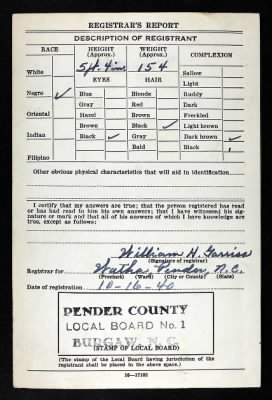 REGISTRAR'S REPORT
DESCRIPTION OF REGISTRANT
RACE HEIGHT (Approx.) WEIGHT (Approx.) COMPLEXION
White 5 ft. 4 in. 154 Sallow
EYES HAIR Light
Negro ✓ Blue Blonde Ruddy
Gray Red Dark
Oriental Hazel Brown Freckled
Brown Black ✓ Light brown
Indian Black ✓ Gray Dark brown ✓
Bald Black
Filipino
Other obvious physical characteristics that will aid in identification
I certify that my answers are true; that the person registered has read
or has had read to him his own answers; that I have witnessed his signa-
ture or mark and that all of his answers of which I have knowledge are
true, except as follows:
William H.
(Signature of registrar)
Registrar for Pender, N.C.
(Precinct) (Ward) (City or County) (State)
Date of registration 10-16-40
PENDER COUNTY
LOCAL BOARD No. 1
BURGAW, N. C.
(STAMP OF LOCAL BOARD)
(The stamp of the Local Board having jurisdiction of the
registrant shall be placed in the above space.)
16—17105